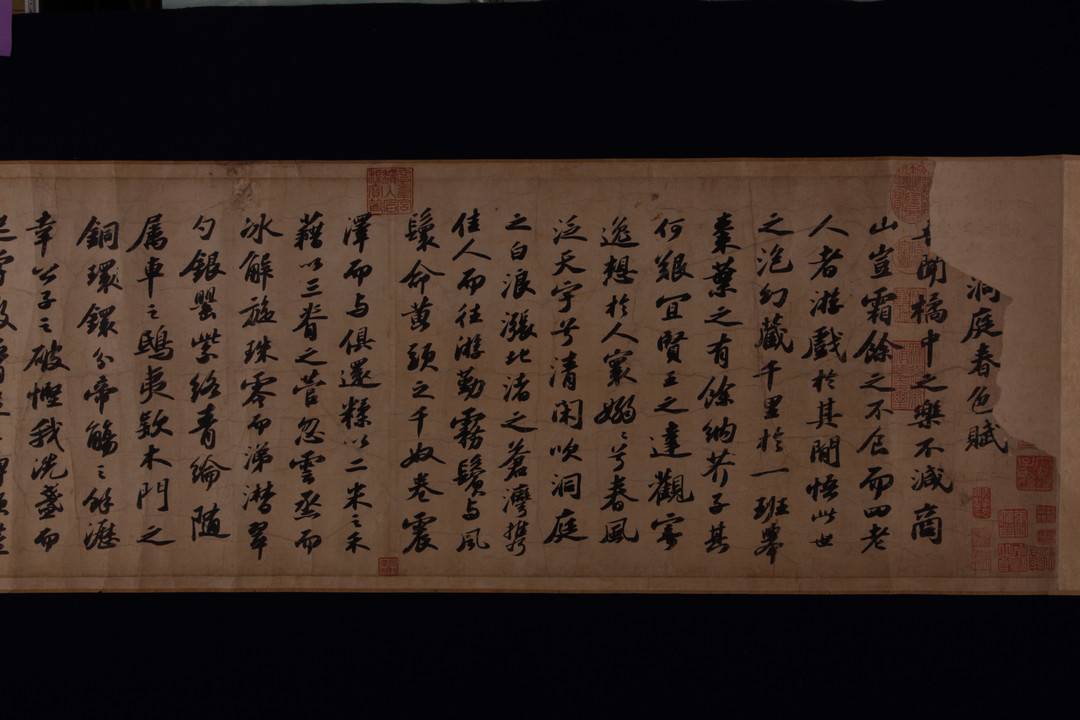 洞庭春色賦
聞橘中之樂不減商
山豈霜餘之不食而四老
人者游戲於其間悟此世
之泡幻藏千里於一班舉
棗葉之有餘納芥子其
何艱宜賢王之達觀寄
逸想於人寰嫋〻兮春風
泛天宇兮清閑吹洞庭
之白浪漲北渚之蒼灣攜
佳人而往游勤霧鬢与風
鬟命黃頭之千奴卷震
澤而与俱還糅以二米之禾
藉以三脊之菅忽雲烝而
冰解旋珠零而涕潸翠
勺銀罌紫絡青綸随
属車之鴟夷款木門之
銅環鐶分帝觴之餘瀝
幸公子之破慳我洗盞而